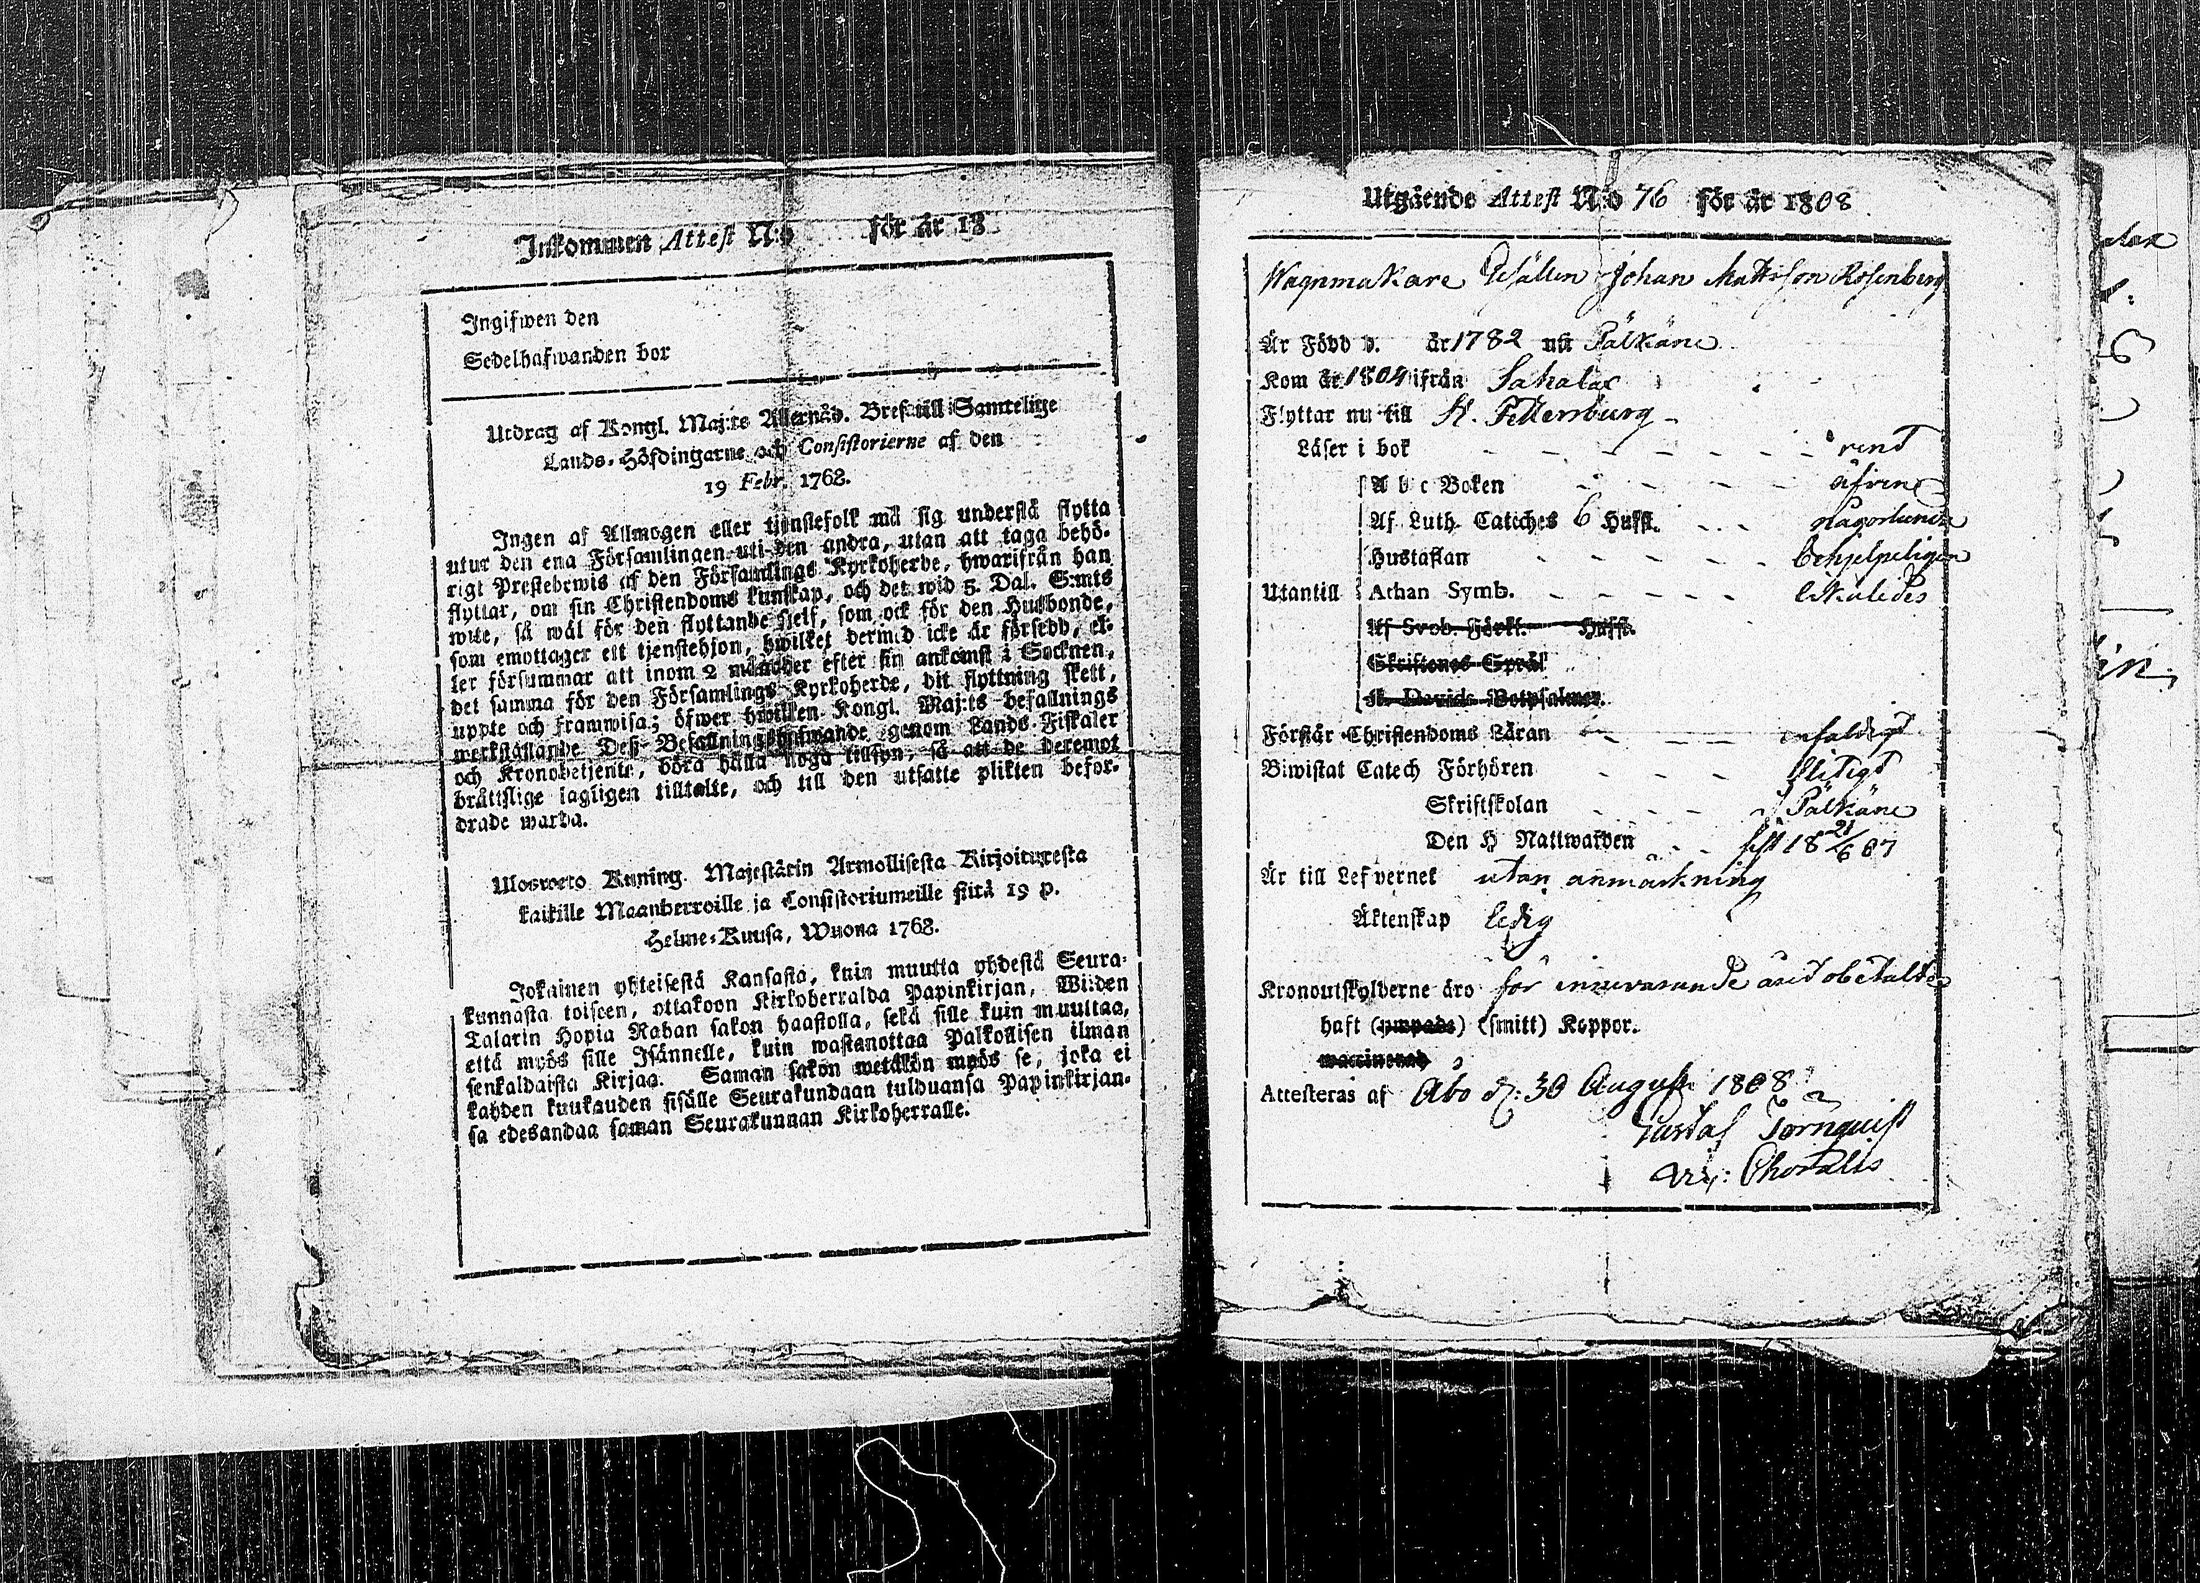 Inkommen Attest N:o för år 18
Ingifwen den
Sedelhafwanden bor
Utdrag af Kongl. Maj:ts Allernåd. Bref till Samtelige
Lands-Höfdingarne och Consistorierne af den
19 Febr. 1768.
Ingen af Allmogen eller tjenstefolk må sig understå flytta
utur den ena Församlingen uti den andra, utan att taga behö-
rigt Prestebewis af den Församlings Kyrkoherde, hwarifrån han
flyttar, om sin Christendoms kunskap, och det wid 5. Dal. S:mts
wite, så wäl för den flyttande sjelf, som ock för den Husbonde,
som emottager ett tjenstehjon, hwilket dermed icke är försedd, el-
ler försummar att inom 2 månader efter sin ankomst i Socknen,
det samma för den Församlings Kyrkoherde, dit flyttning skett,
uppte och framwisa; öfwer hwilken Kongl. Maj:ts befallnings
werkställande Deß Befallningshafwande genom Lands-Fiskaler
och Kronobetjente, böra hålla noga tillsyn, så att de deremot
bråttslige lagligen tilltalte, och till den utsatte plikten befor-
drade warda.
Uloswero Kuning. Majestätin Armollisesta Kirjoituxesta
kaikille Maanherroille ja Consistoriumeille siitä 19 p.
Helme-Kuusa, Wuona 1768.
Jokainen yhteisestä Kansasta, kuin muutta yhdestä Seura-
kunnasta toiseen, ottakoon Kirkoherralda Papinkirjan, Wiiden
Talarin Hopia Rahan sakon haastolla, sekä sille kuin muuttaa,
että myös sille Isännelle, kuin wastanottaa Palkollisen ilman
senkaldaista Kirjaa. Saman sakon wetäkön myös se, joka ei
kahden kuukauden sisälle Seurakundaan tulduansa Papinkirjan-
sa edesandaa saman Seurakunnan Kirkoherralle.
Utgående Attest N:o 76 för år 1808
Wagnmakare Gesällen Johan Mattsson Rosenberg
Är Född d. år 1782 uti Pälkäne
Kom år 1804 ifrån Sahalax
Flyttar nu till St. Pettersburg
Läser i bok rent
A b c Boken äfven
Af Luth. Catches 6 Hufst. någorlunda
Hustaflan behjelpeligen
Utantill Athan Symb. likaledes
Af Sveb. Förkl. Hufst.
Skriftenes Språk
K. Davids Botpsalmer.
Förstår Christendoms Läran enfaldigt
Biwistat Catech Förhören flitigt
Skriftskolan i Pälkäne
Den H Nattwarden sist 18 21/6 07
Är till Lefvernet utan anmärkning
Äktenskap ledig
Kronoutskylderne äro för innevarande år obetalte
haft (ympade) (smitt) Koppor.
waccinerad
Attesteras af Åbo d. 30 August 1808
Gustaf Törnquist